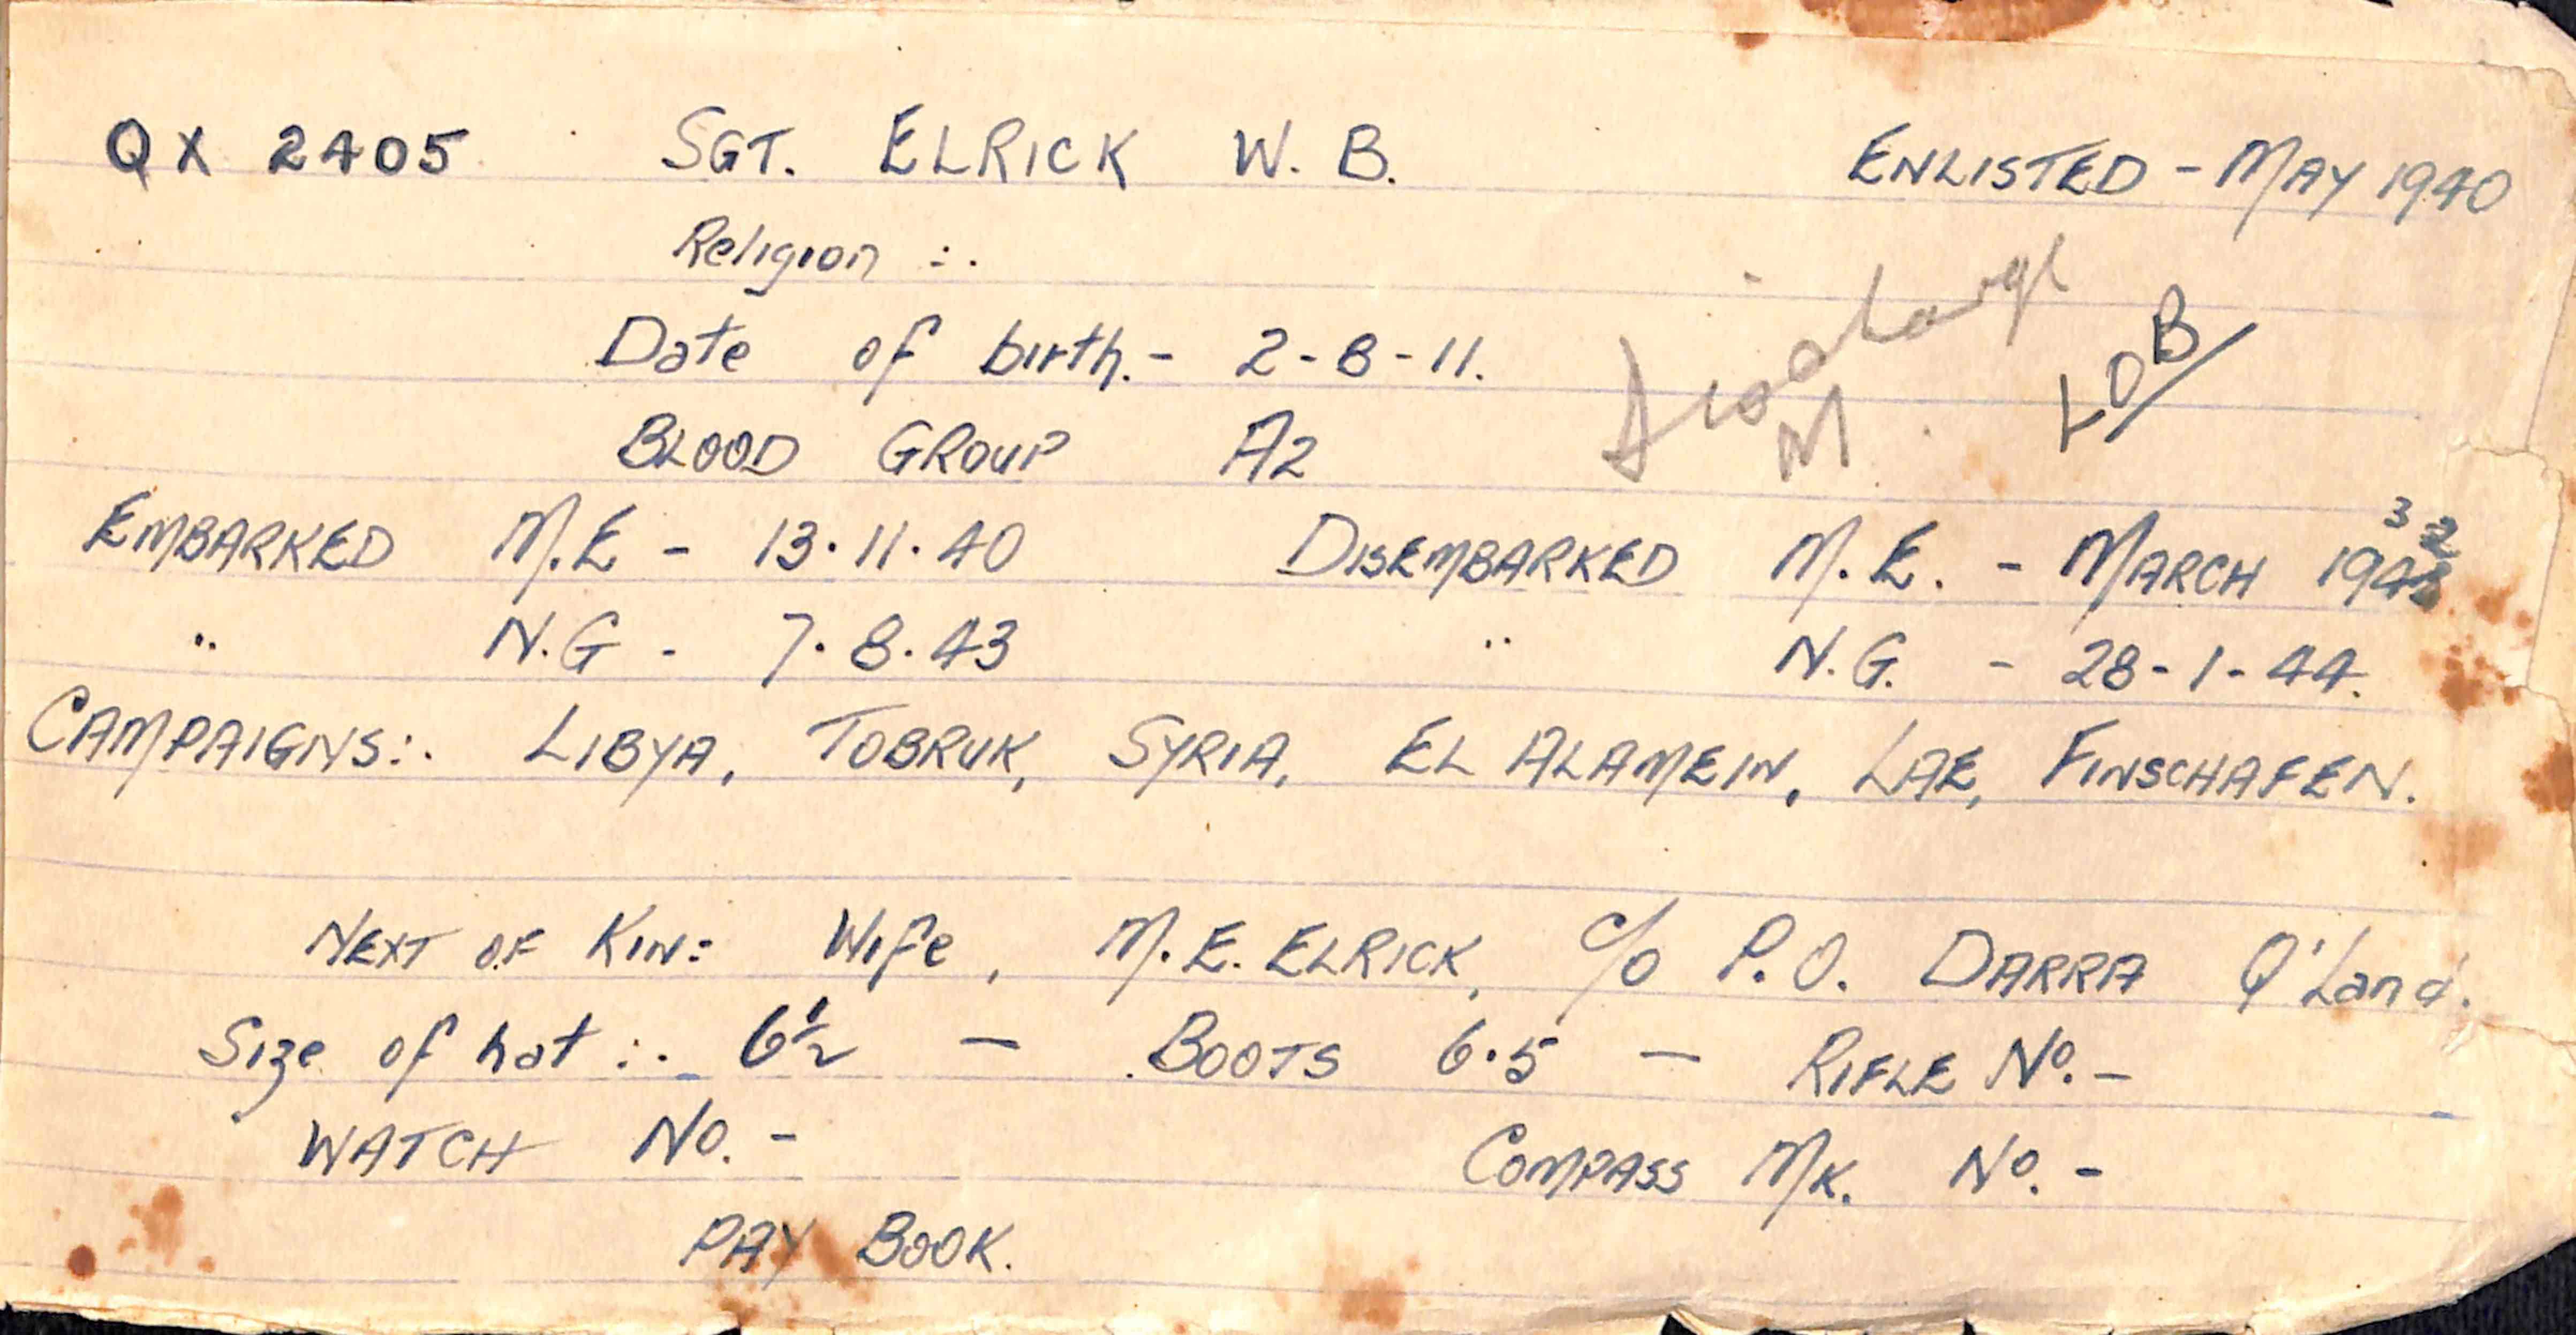 QX 2405 SGT. ELRICK W. B. ENLISTED - MAY 1940
Religion :.
Date of birth.- 2-8-11.
LOB/
BLOOD GROUP A2
M
EMBARKED M.E - 13.11.40 DISEMBARKED M.E. - MARCH 194
3 2
" N.G - 7.8.43 " N.G. - 28-1-44.
CAMPAIGNS:. LIBYA, TOBRUK, SYRIA, EL ALAMEIN, LAE, FINSCHAFEN.
NEXT OF KIN: Wife, M.E. ELRICK, c/o P.O. DARRA Q'Land.
Size of hat :. 6½ - BOOTS 6.5 - RIFLE No. -
WATCH No. - COMPASS MK. No. -
PAY BOOK.